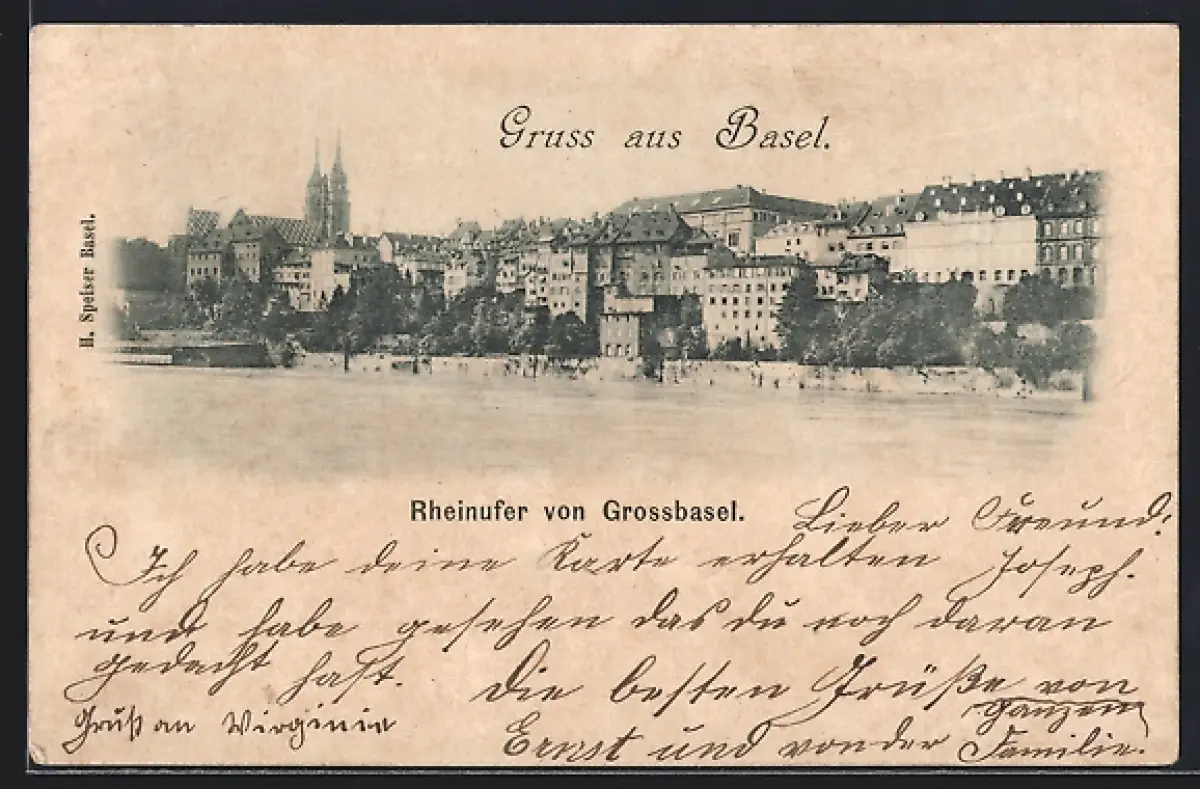 Gruss aus Basel.
H. Speiser Basel.
Rheinufer von Grossbasel.
Lieber Freund:
Ich habe deine Karte erhalten Joseph.
und habe gesehen das du noch daran
gedacht hast. Die besten Grüße von
ganzen
Gruß an Virginie Ernst und von der Familie.